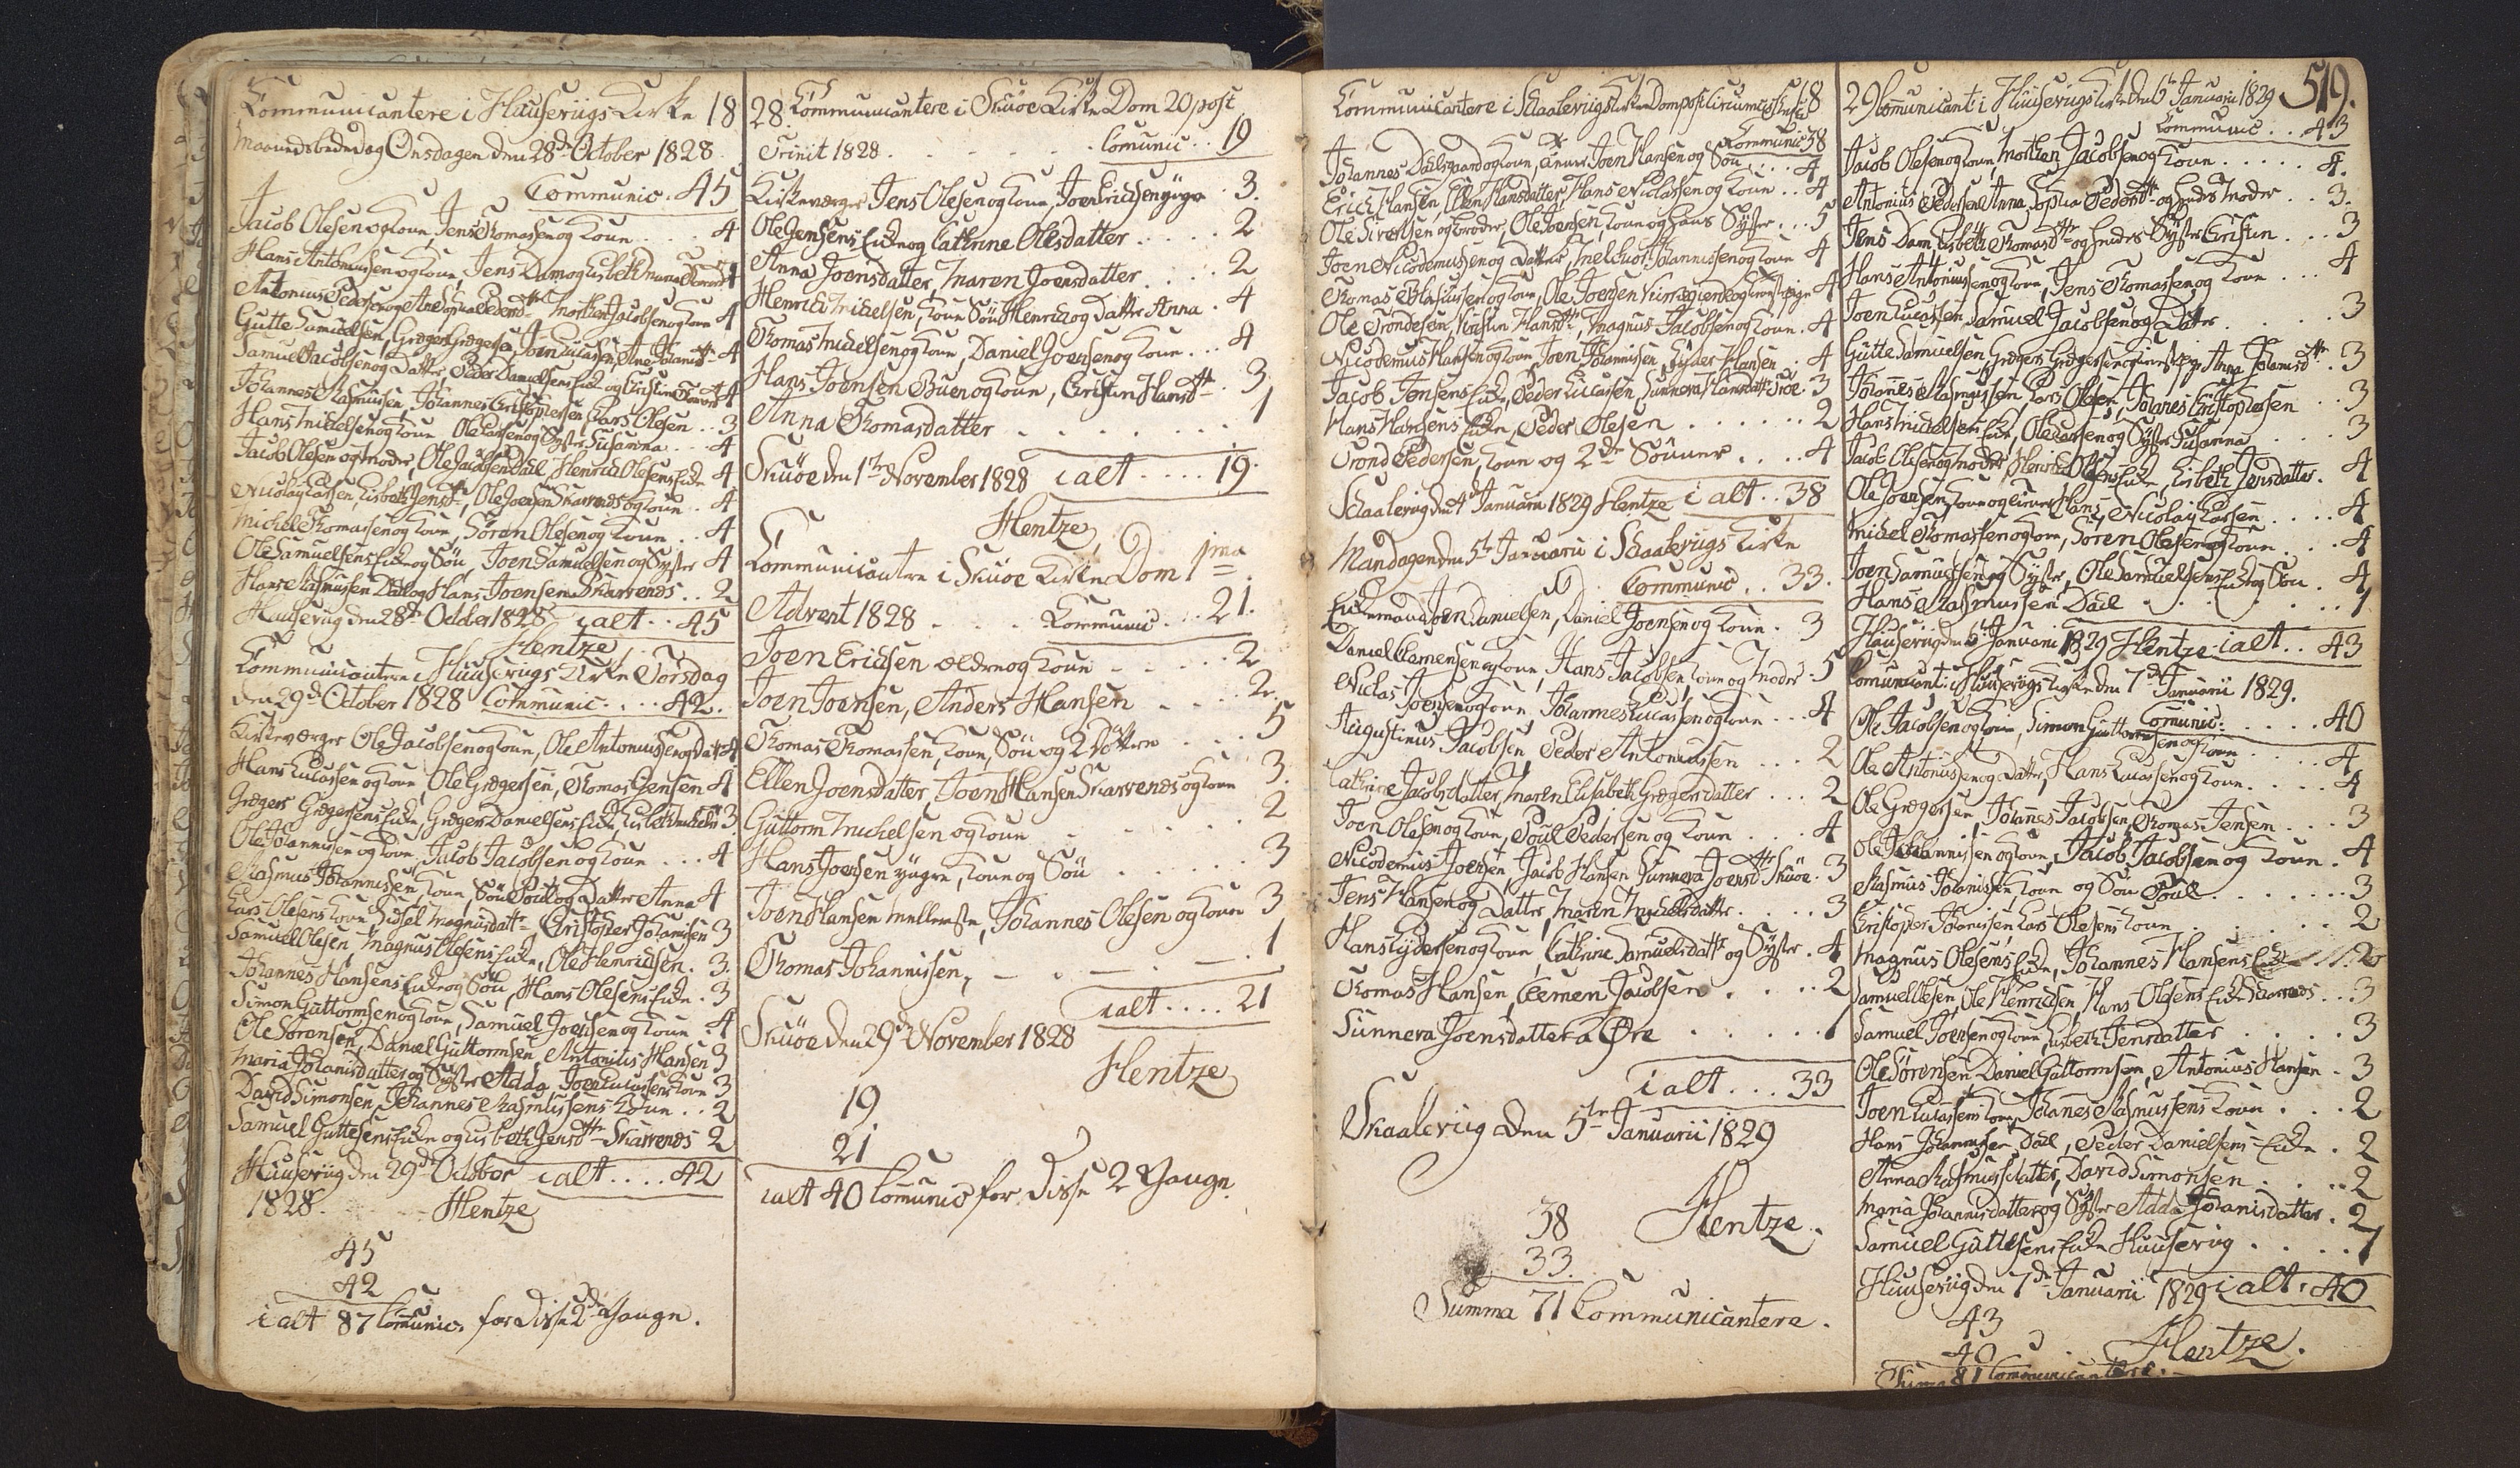 Communicantere i Huuseviigs Kirke 18
Maanedsbededag Onsdagen den 28de October 1828.
Communic. 45
Jacob Olesen og Kone, Jens Thomasen og Kone . . . 4
Hans Antoniussen og Kone, Jens Dam og Lisbeth 4
Antonius Pedersen og Morten Jacobsen og Kone 4
Gutte Samuelsen, Grægers Grægersen, Joen Lucassen, Ane Johannisdttr 4
Samuel Jacobsen og Datter, Peder Danielsens Enke og Christine 4
Johannes Rasmussen, Johannes Christophersen, Lars Olesen . . 3
Hans Michelsen og Kone Ole Larsen og Syster Susanna . . . 4
Jacob Olesen og Moder, Ole Jacobsen Dall Henrich Olesens Enke 4
Nicolay Larsen, Lisbeth Jensdttr, Ole Joensen Skarvenæs og Kone . 4
Michel Thomassen og Kone, Sören Olesen og Kone . . 4
Ole Samuelsens Enke og Sön, Joen Samuelsen og Syster 4
Hans Rasmussen Dall og Hans Joensen Skarvenæs . . 2
Huusevig den 28de October 1828 ialt . . 45
Hentze
Communicantere i Huuseviigs Kirke Torsdag
den 29de October 1828 Communic. . . . 42.
Kirkeværger Ole Jacobsen og Kone, Ole Antoniussen og Datter 4
Hans Lucassen og Kone, Ole Grægersen, Thomas Jensen 4
Grægers Grægersens Enke, Grægers Danielsens Enke, Lisbeth 3
Ole Johannissen og Kone Jacob Jacobsen og Kone . . . 4
Rasmus Johannissen, Kone, Sön Poul og Datter Anna 4
Lars Olesens Kone Sidsel Magnusdattr Christopher Johanisen 3
Samuel Olesen, Magnus Olesens Enke, Ole Henrichsen . 3.
Johannes Hansens Enke og Sön, Hans Olesens Enke . 3
Simon Guttormsen og Kone, Samuel Joensen og Kone . 4
Ole Sörensen, Daniel Guttormsen, Antonius Hansen 3
Maria Johanisdatter og Syster Adda Joen Lucassens Kone 3
David Simonsen, Johannes Rasmussens Kone . . 2
Samuel Guttesens Enke og Lisbeth Jensdttr Skarvenæs 2
Huusevig den 29de October ialt . . . . 42
1828. Hentze
45
42
ialt 87 Comunic. for disse 2de Gange.
28. Kommunicantere i Skuöe Kirke Dom 20 post
Trinit 1828 . . . . Comunic . . 19
Kirkeværger Jens Olesen og Kone, Joen Erichsen yngre . 3.
Ole Jensens Enke og Cathrine Olesdatter . . . . 2
Anna Joensdatter, Maren Joensdatter . . . . 2
Henrich Michelsen, Kone Sön Henrich og Dattr Anna . 4
Thomas Michelsen og Kone, Daniel Joensen og Kone . . . 4
Hans Joensen Buen og Kone, Christin Hansdttr 3
Anna Thomasdatter . . . . . . 1
Skuöe den 1te November 1828 ialt . . . . 19.
Hentze
Communicantere i Skuöe Kirke Dom 1ma
Advent 1828 . . . . Kommunic . . . 21.
Joen Erichsen ældre og Kone . . . . . 2
Joen Joensen, Anders Hansen . . . . 2.
Thomas Thomassen, Kone, Sön og 2 Döttre . . . 5
Ellen Joensdatter, Joen Hansen Skarvenæs og Kone 3.
Guttorm Michelsen og Kone . . . . . 2
Hans Joensen yngre, Kone og Sön . . . . 3
Joen Hansen mellemste, Johannes Olesen og Kone 3
Thomas Johannissen, . . . . . 1
ialt . . . . 21
Skuöe den 29de November 1828
Hentze
19
21
ialt 40 Comunic for disse 2 Gange.
Communicantere i Skaaleviigs Kirke Dom post Circumcis Christi 18
Kommunic 38
Johannes Dalsgaard og Kone, Joen Hansen og Sön . . . 4
Erich Hansen, Ellen Hansdatter, Hans Niclassen og Kone . . . 4
Ole Sivertsen og broder, Ole Joensen, Kone og Hans Syster . . . 5
Joen Nicodemussen og Datter, Melchior Johannissen og Kone 4
Thomas Rasmussen og Kone, Ole Joensen 4
Ole Trondesen, Kirstin Hansdttr, Magnus Jacobsen og Kone . 4
Nicodemus Hansen og Kone, Joen Johannisen, Lyder Hansen . 4
Jacob Jensens Enke, Peder Lucassen, Sunneva Hansdattr Skoe . 3
Hans Hansens Enke, Peder Olesen . . . . . . 2
Trond Pedersen, Kone og 2de Sönner . . . . 4
Skaalevig den 4de Januarii 1829 Hentze ialt . . 38
Mandagen den 5te Januarii i Skaaleviigs Kirke
Communic . . 33.
Enkemand Joen Danielsen, Daniel Joensen og Kone . 3
Daniel Clemensen og Kone, Hans Jacobsen Kone og Moder . 5
Niclas Joensen og Kone Johannes Lucassen og Kone . . . 4
Augustinus Jacobsen, Peder Antoniussen . . . 2
Cathrine Jacobsdatter, Maren Elisabeth Grægersdatter . . . 2
Joen Olesen og Kone, Poul Pedersen og Kone . . . 4
Nicodemus Joensen, Jacob Hansen Sunneva Joensdttr Skuöe . 3
Jens Hansen og Datter, Maren Michelsdatter . . . . 3
Hans Lydersen og Kone, Cathrine Samuelsdattr og Syster . 4
Thomas Hansen, Clemen Jacobsen . . . . 2
Sunneva Joensdatter a Øre . . . . . 1
ialt . . . 33
Skaalevig den 5te Januarii 1829
Hentze.
38
33.
Summa 71 Communicantere.
519.
29 Comunicant i Huuseviigs Kirke den 6te Januarii 1829
Kommunic . . . 43
Jacob Olesen og Kone, Morten Jacobsen og Kone . . . . . 4.
Antonius Pedersen, Anna Sophia Pedersdttr og hendes Moder . . 3.
Jens Dam, Lisbeth Thomasdttr og hendes Syster Christin . . . 3
Hans Antoniussen og Kone, Jens Thomassen og Kone . . . 4
Joen Lucassen, Samuel Jacobsen og Datter . . . . 3
Gutte Samuelsen, Grægers Grægersen Anna Johanisdttr . 3
Johannes Rasmussen, Lars Olesen, Johanes Christophersen . . 3
Hans Michelsens Enke, Ole Larsen og Syster Susanna . . . 3
Jacob Olesen og Moder, Henrich Olesens Enke, Lisbeth Jensdatter . 4
Ole Joensen, Kone Hans, Nicolay Larsen . . . 4
Michel Thomassen og Kone, Sören Olesen og Kone . . . 4
Joen Samuelsen og Syster, Ole Samuelsens Enke og Sön . 4
Hans Rasmussen Dall . . . . . 1
Huusevig den 6te Januarii 1829 Hentze ialt . . 43
Comunicant: i Huuseviigs Kirke den 7de Januarii 1829.
Comunic: . . . . . 40
Ole Jacobsen og Kone, Simon Guttormsen og Kone . . . 4
Ole Antoniussen og Datter, Hans Lucassen og Kone . . . . 4
Ole Grægersen, Johanes Jacobsen, Thomas Jensen . . . 3
Ole Johannissen og Kone, Jacob Jacobsen og Kone . 4
Rasmus Johanissen, Kone og Sön Poul . . . . . 3
Christopher Johanissen, Lars Olesens Kone . . . . 2
Magnus Olesens Enke, Johannes Hansens Enke 2
Samuel Olesen, Ole Henrichsen, Hans Olesens Enke Skarvenæs . . 3
Samuel Joensen og Kone, Lisbeth Jensdatter . . . . 3
Ole Sörensen Daniel Guttormsen, Antonius Hansen . 3
Joen Lucassens Kone, Johanes Rasmussens Kone . . . 2
Hans Johannissen Dall, Peder Danielsens Enke . 2
Anna Rasmusdatter, David Simonsen . . . . 2
Maria Johannisdatter og Syster Adda Johanisdatter . 2
Samuel Guttesens Enke Huusevig . . . . 1
Huusevig den 7de Januarii 1829 ialt . 40
43
40
Hentze.
Suma 81 Communicantere.